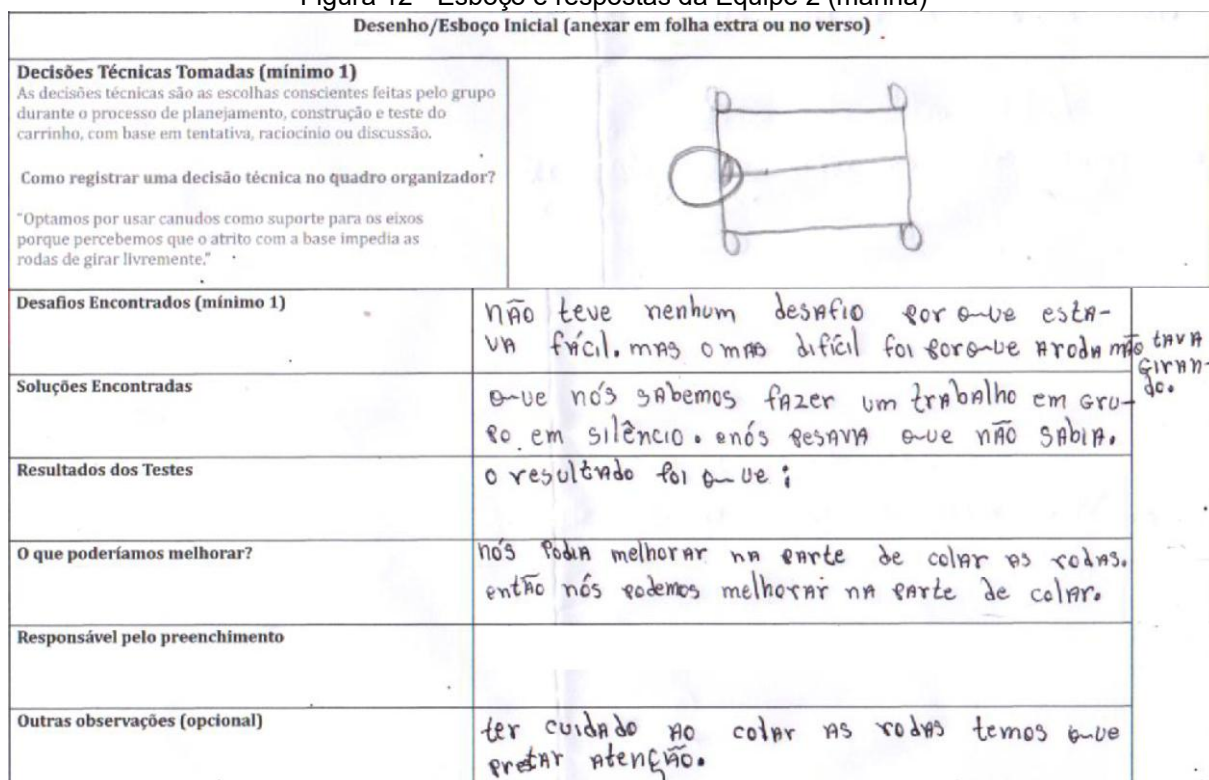 Figura 12 - Esboço e respostas da Equipe 2 (manhã)
Desenho/Esboço Inicial (anexar em folha extra ou no verso)
Decisões Técnicas Tomadas (mínimo 1)
As decisões técnicas são as escolhas conscientes feitas pelo grupo
durante o processo de planejamento, construção e teste do
carrinho, com base em tentativa, raciocínio ou discussão.
Como registrar uma decisão técnica no quadro organizador?
"Optamos por usar canudos como suporte para os eixos
porque percebemos que o atrito com a base impedia as
rodas de girar livremente."
Desafios Encontrados (mínimo 1)
não teve nenhum desafio por que esta-
va fácil. mas o mas difícil foi porque a roda não tava
giran-
do.
Soluções Encontradas
que nós sabemos fazer um trabalho em gru-
po em silêncio. enós pesava que não sabia.
Resultados dos Testes
o resultado foi que:
O que poderíamos melhorar?
nós podia melhorar na parte de colar as rodas.
então nós podemos melhorar na parte de colar.
Responsável pelo preenchimento
Outras observações (opcional)
ter cuidado ao colar as rodas temos que
prestar atenção.